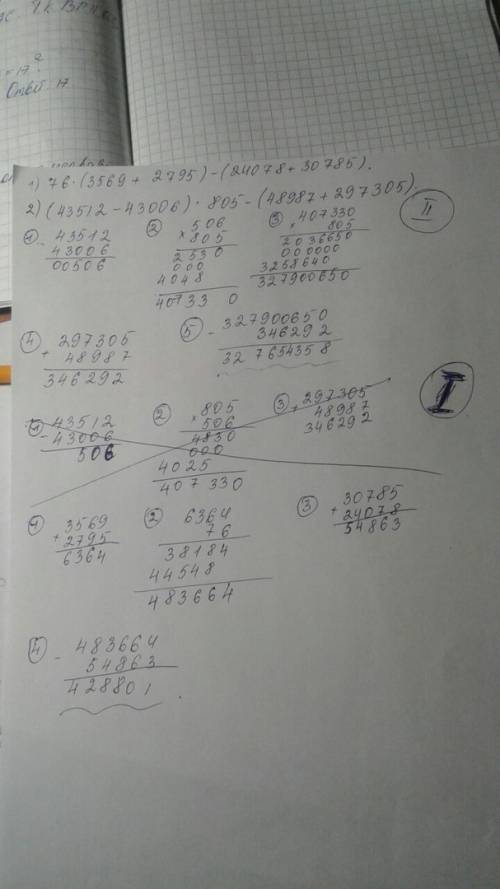 = 17²
Ответ 17
1) 76·(3569 + 2795) - (24078 + 30785).
2) (43512 - 43006) · 805 - (48987 + 297305).
II
1
- 43512
43006
00506
2
× 506
805
2530
000
4048
407330
3
407330
× 805
2036650
000000
3258640
327900650
4
297305
+ 48987
346292
5
- 327900650
346292
327654358
I
1
- 43512
43006
506
2
× 805
506
4830
000
4025
407330
3
+ 297305
48987
346292
1
+ 3569
2795
6364
2
6364
76
38184
44548
483664
3
30785
+ 24078
54863
4
- 483664
54863
428801